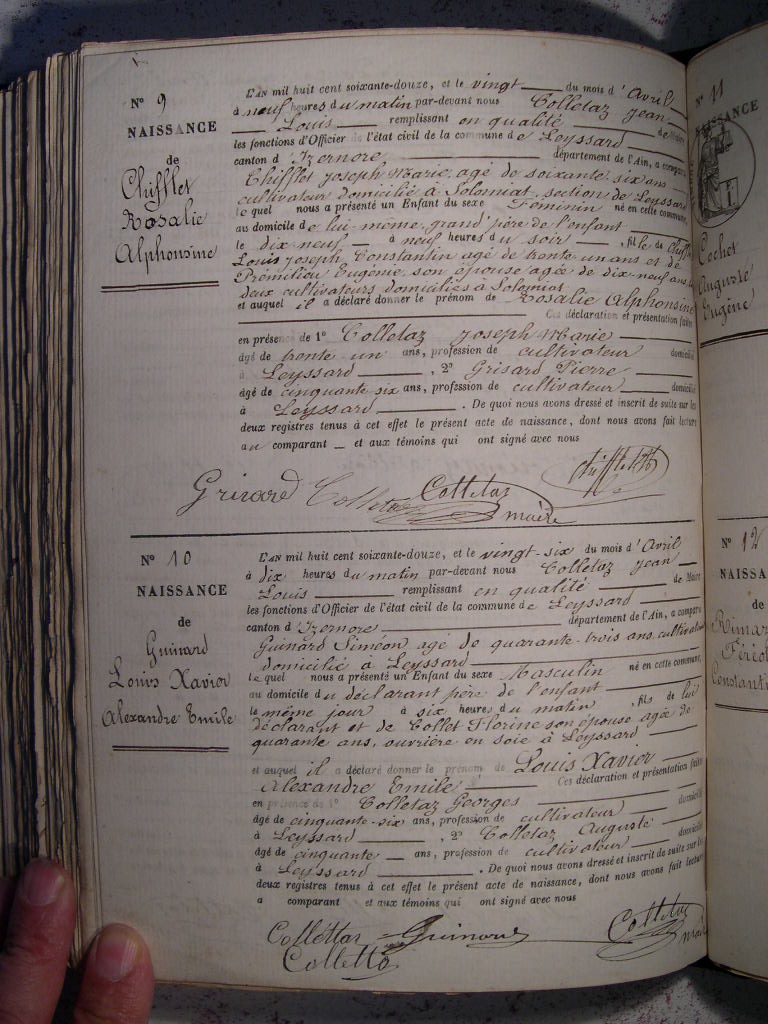 N° 9
NAISSANCE
de
Chifflet
Rosalie
Alphonsine
L'AN mil huit cent soixante-douze, et le vingt du mois d'Avril
à neuf heures du matin par-devant nous Colletaz Jean
Louis remplissant en qualité de Maire
les fonctions d'Officier de l'état civil de la commune de Leyssard
canton d'Izernore, département de l'Ain, a comparu
Chifflet Joseph Marie, agé de soixante six ans
cultivateur domicilié à Solomiat, section de Leyssard
lequel nous a présenté un Enfant du sexe Féminin né en cette commune,
au domicile de lui-même, grand'père de l'enfant
le dix neuf à neuf heures du soir, fille de Chifflet
Louis Joseph Constantin agé de trente un ans et de
Premilieu Eugénie, son épouse agée de dix neuf ans
deux cultivateurs domiciliés à Solomiat
et auquel il a déclaré donner le prénom de Rosalie Alphonsine
Ces déclaration et présentation faites
en présence de 1° Colletaz Joseph Marie
âgé de trente un ans, profession de cultivateur domicilié
à Leyssard, 2° Grisard Pierre
âgé de cinquante six ans, profession de cultivateur domicilié
à Leyssard. De quoi nous avons dressé et inscrit de suite sur les
deux registres tenus à cet effet le présent acte de naissance, dont nous avons fait lecture
au comparant et aux témoins qui ont signé avec nous
Grisard Colletaz Colletaz maire
N° 10
NAISSANCE
de
Guinard
Louis Xavier
Alexandre Emile
L'AN mil huit cent soixante-douze, et le vingt-six du mois d'Avril
à dix heures du matin par-devant nous Colletaz Jean
Louis remplissant en qualité de Maire
les fonctions d'Officier de l'état civil de la commune de Leyssard
canton d'Izernore département de l'Ain, a comparu
Guinard Siméon agé de quarante-trois ans, cultivateur
domicilié à Leyssard
lequel nous a présenté un Enfant du sexe Masculin né en cette commune,
au domicile du déclarant père de l'enfant
le même jour à six heures du matin, fils de lui
déclarant et de Collet Florine son épouse agée de
quarante ans, ouvrière en soie à Leyssard
et auquel il a déclaré donner le prénom de Louis Xavier
Alexandre Emile Ces déclaration et présentation faites
en présence de 1° Colletaz Georges
âgé de cinquante-six ans, profession de cultivateur domicilié
à Leyssard, 2° Colletaz Auguste
âgé de cinquante ans, profession de cultivateur domicilié
à Leyssard. De quoi nous avons dressé et inscrit de suite sur les
deux registres tenus à cet effet le présent acte de naissance, dont nous avons fait lecture
a comparant et aux témoins qui ont signé avec nous
Collettaz Guinard Colletaz
N° 11
NAISSANCE
Cochet
Auguste
Eugène
N° 12
NAISSA
de